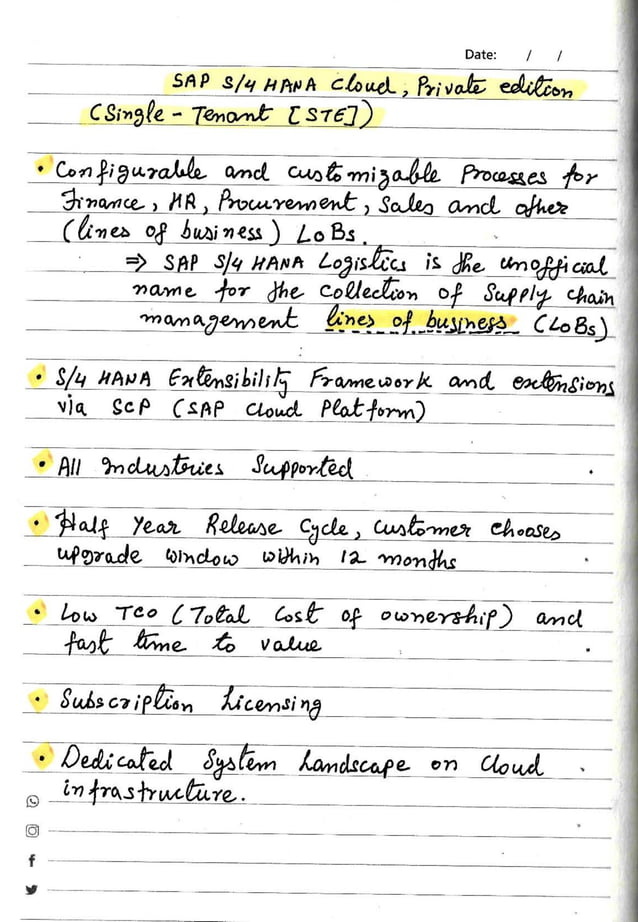 Date: / /
SAP S/4 HANA Cloud, Private edition
(Single - Tenant [STE])
• Configurable and customizable Processes for
Finance, HR, Procurement, Sales and other
(lines of business) LoBs.
⇒ SAP S/4 HANA Logistics is the unofficial
name for the collection of Supply chain
management lines of business (LoBs)
• S/4 HANA Extensibility Framework and extensions
via SCP (SAP Cloud Platform)
• All Industries Supported
• Half Year Release Cycle, Customer chooses
upgrade window within 12 months
• Low TCO (Total Cost of ownership) and
fast time to value
• Subscription Licensing
• Dedicated System Landscape on Cloud
infrastructure.